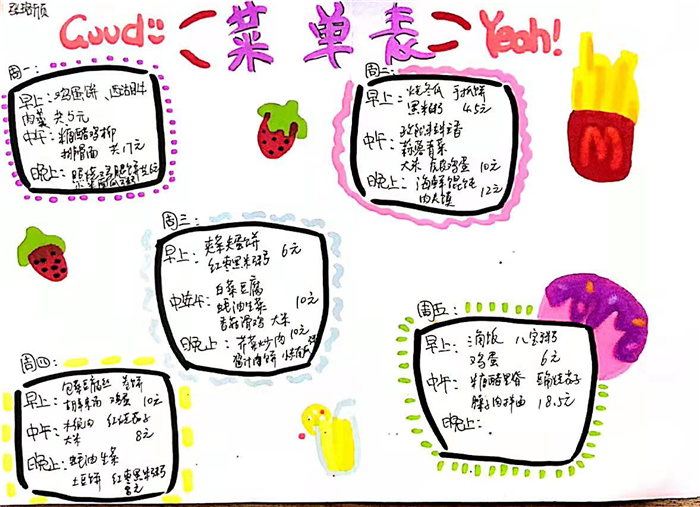 Guud
菜单表
Yeah!
周一:
早上: 鸡蛋饼、西湖牛
肉羹 共5元
中午: 糖醋鸡柳
排骨面 共17元
晚上:
周二:
早上: 烧冬瓜 手抓饼
黑米粥 4.5元
中午:
蒜蓉青菜
大米 皮皮鸡蛋 10元
晚上: 海鲜馄饨 12元
肉火馍
周三:
早上: 夹蛋饼 6元
红枣黑米粥
中午: 白菜豆腐
蚝油生菜 10元
香菇滑鸡 大米
晚上: 芹菜炒肉 10元
酱汁肉饼
周四:
包菜豆腐丝 卷饼
早上: 鸡蛋 10元
中午: 木须肉 红烧茄子
大米 8元
晚上: 蚝油生菜
土豆饼 红枣黑米粥
8元
周五:
早上: 汤饭 八宝粥
鸡蛋 6元
中午: 糖醋里脊 茄子
臊子肉拌面 18.5元
晚上:
M